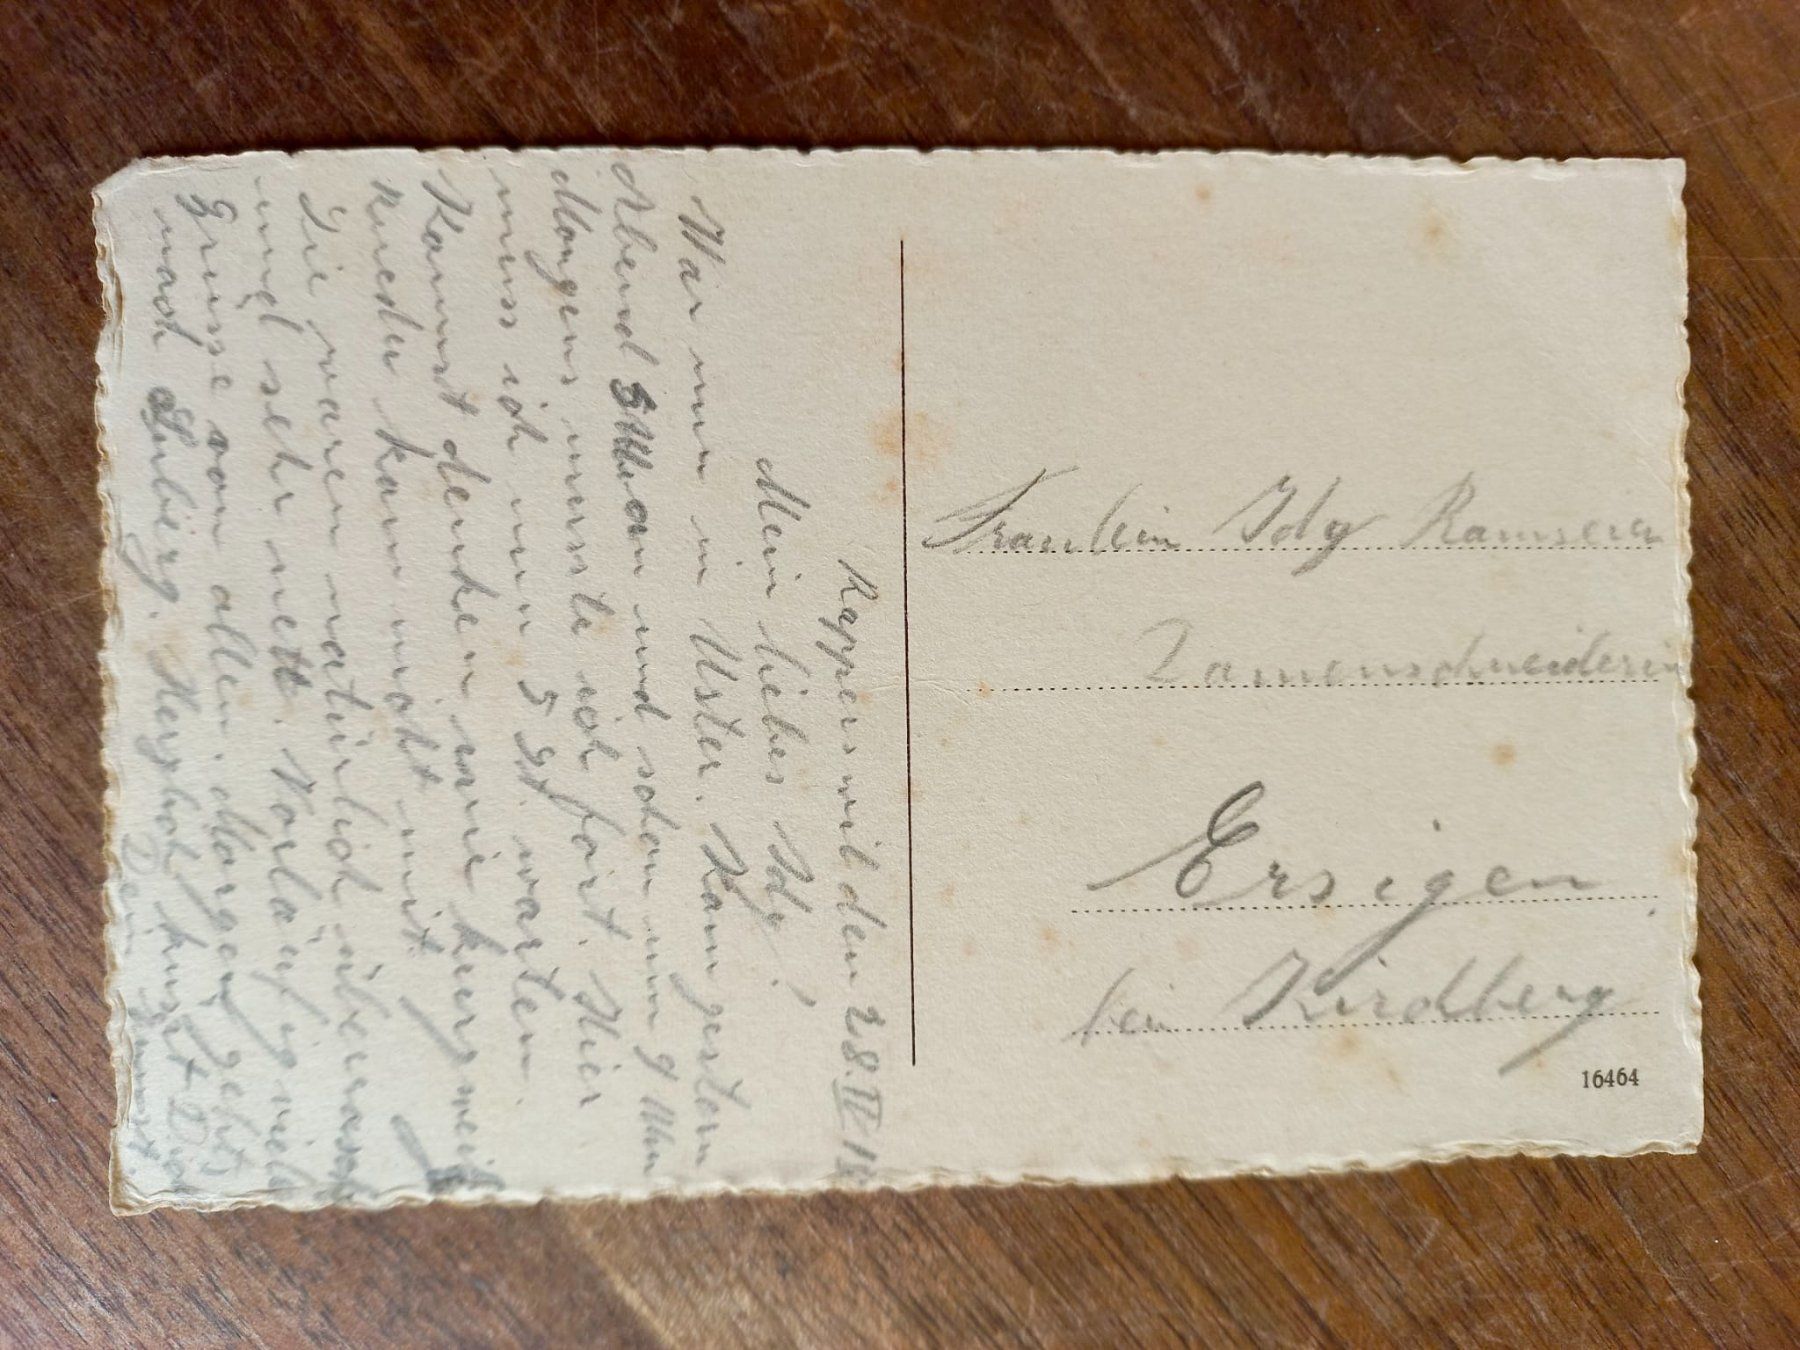 Rapperswil den 28. IV 1
Mein liebes Idy!
War nun in Uster. Kam gestern
Abend 5 Uhr an und schon um 9 Uhr
Morgens musste ich fort. Hier
muss ich nun 5 St. warten.
Kannst denken wie kurzweilig
Rueder kann nicht mit.
Die waren natürlich überrascht
und sehr nett. Vorläufig viele
Grüsse von allen. Morgen gehts
nach Lueberg. Herzlich küsst Dich
Dein Ernst
Fraulein Idy Ramseier
Damenschneiderin
Ersigen
bei Kirchberg
16464